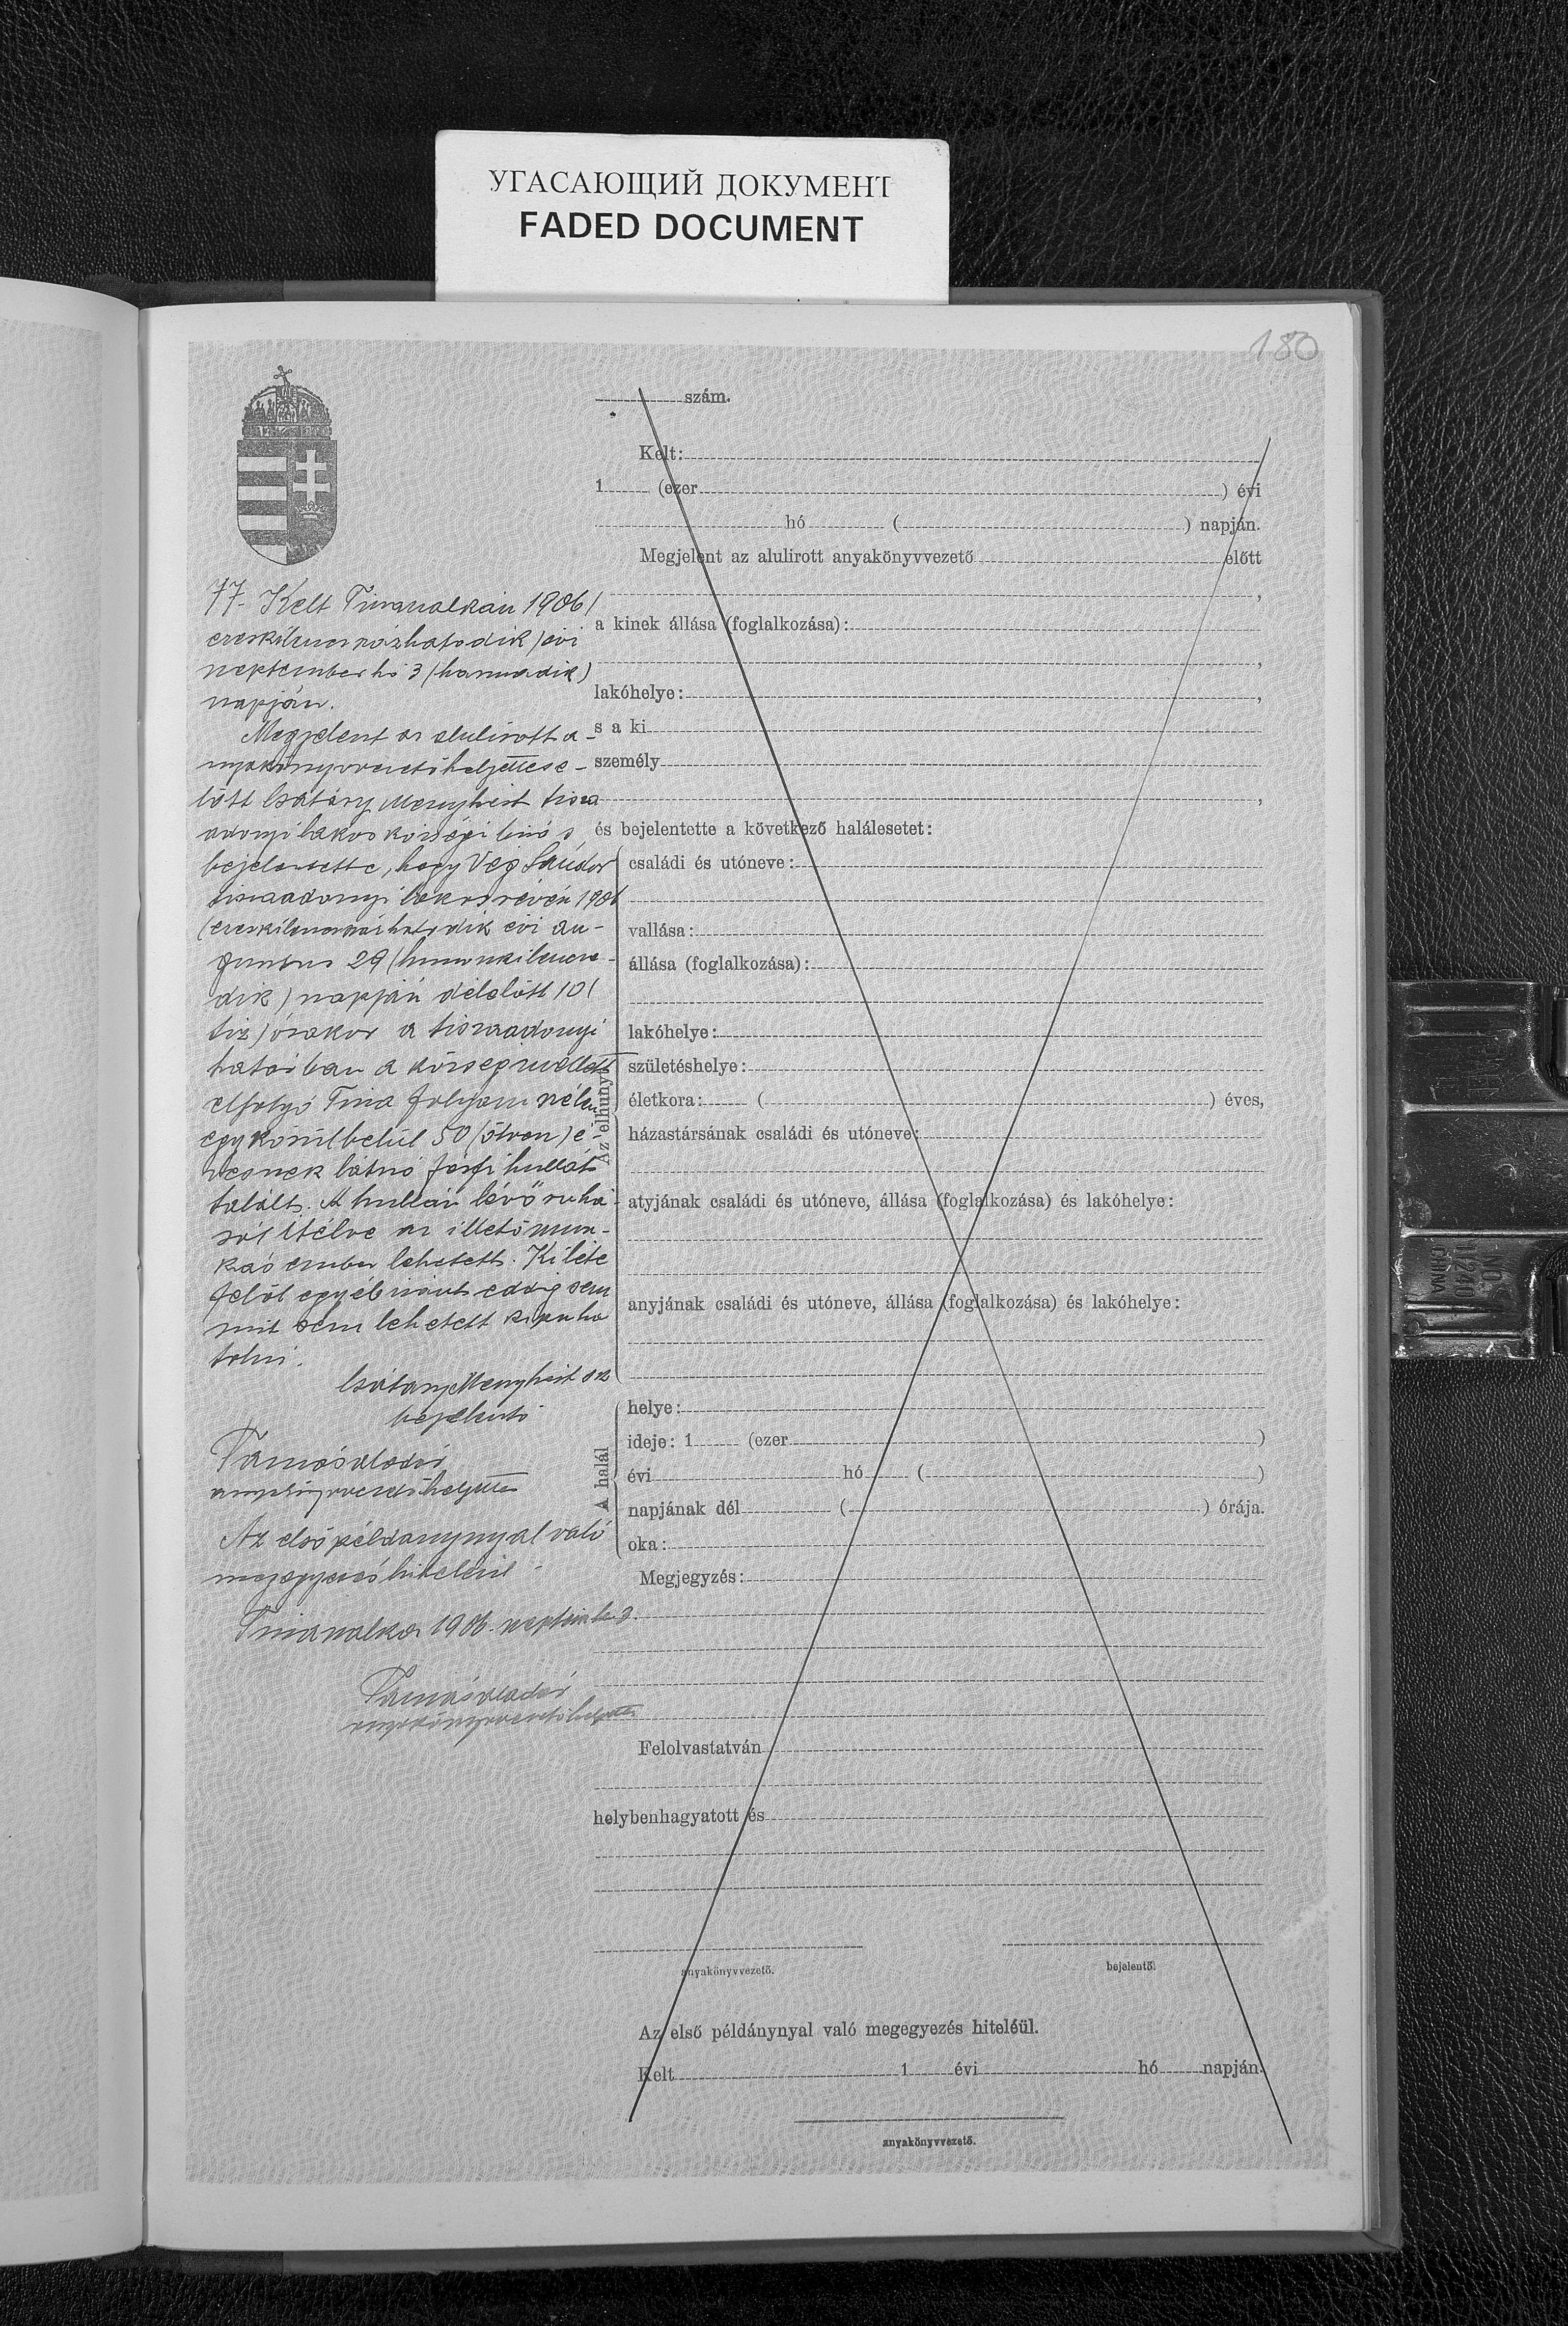 УГАСАЮЩИЙ ДОКУМЕНТ
FADED DOCUMENT
180
szám.
Kelt:
1 (ezer ) évi
hó ( ) napján.
Megjelent az alulirott anyakönyvvezető előtt
,
a kinek állása (foglalkozása):
,
lakóhelye: ,
s a ki
személy
,
és bejelentette a következő halálesetet:
Az elhunyt
családi és utóneve:
vallása:
állása (foglalkozása):
lakóhelye:
születéshelye:
életkora: ( ) éves,
házastársának családi és utóneve:
atyjának családi és utóneve, állása (foglalkozása) és lakóhelye:
anyjának családi és utóneve, állása (foglalkozása) és lakóhelye:
A halál
helye:
ideje: 1 (ezer )
évi hó ( )
napjának dél ( ) órája.
oka:
Megjegyzés:
Felolvastatván
helybenhagyatott és
anyakönyvvezető. bejelentő.
Az első példánynyal való megegyezés hiteléül.
Kelt 1 évi hó napján.
anyakönyvvezető.
77. Kelt Tiszaszalkán 1906 (
ezerkilencszázhatodik) évi
szeptember hó 3 (harmadik)
napján.
Megjelent az alulirott a-
nyakönyvvezetőhelyettes e-
lőtt Csatáry Menyhért tisza
adonyi lakos községi biró s
bejelentette, hogy Vég Sándor
tiszaadonyi lakos révén 1906
(ezerkilencszázhatodik évi au-
gusztus 29 (huszonkilence-
dik) napján délelőtt 10 (
tiz) órakor a tiszaadonyi
határban a község mellett
elfolyó Tisza folyam szélen
egy körülbelül 50 (ötven) é-
vesnek látszó férfi hullát
talált. A hullán lévő ruhá-
ról itélve az illető mun-
kás ember lehetett. Kiléte
felől egyébiránt eddig sem
mit sem lehetett kipuha
tolni.
Csatáry Menyhért
bejelentő
Tamás Aladár
anyakönyvvezetőhelyettes
Az első példánynyal való
megegyezés hiteléül
Tiszaszalka 1906. szeptember 3.
Tamás Aladár
anyakönyvvezetőhelyettes